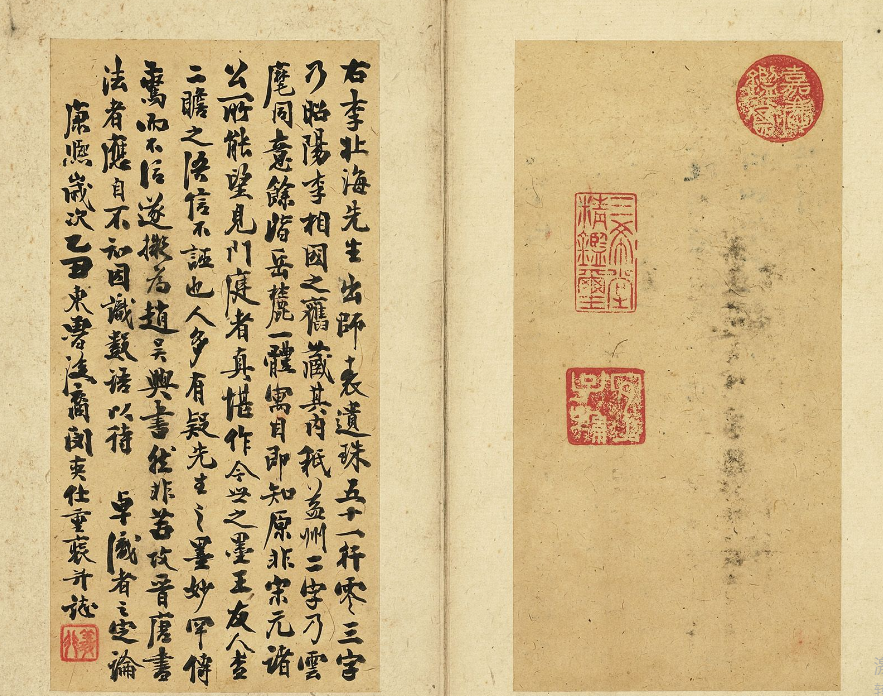 嘉慶鑑賞
三希堂精鑑璽
右李北海先生出師表遺珠五十一行零三字
乃昭陽李相國之舊藏其內祇益州二字乃雲
麾同意餘皆岳麓一體寓目即知原非宋元諸
公所能望見門庭者真堪作今世之墨王友人查
二瞻之語信不誣也人多有疑先生之墨妙罕儔
驚而不信遂擬為趙吳興書然非苦攻晉唐書
法者應自不知因識數語以待 卓識者之定論
康熙歲次乙丑東魯後裔閔奕仕重裝并誌